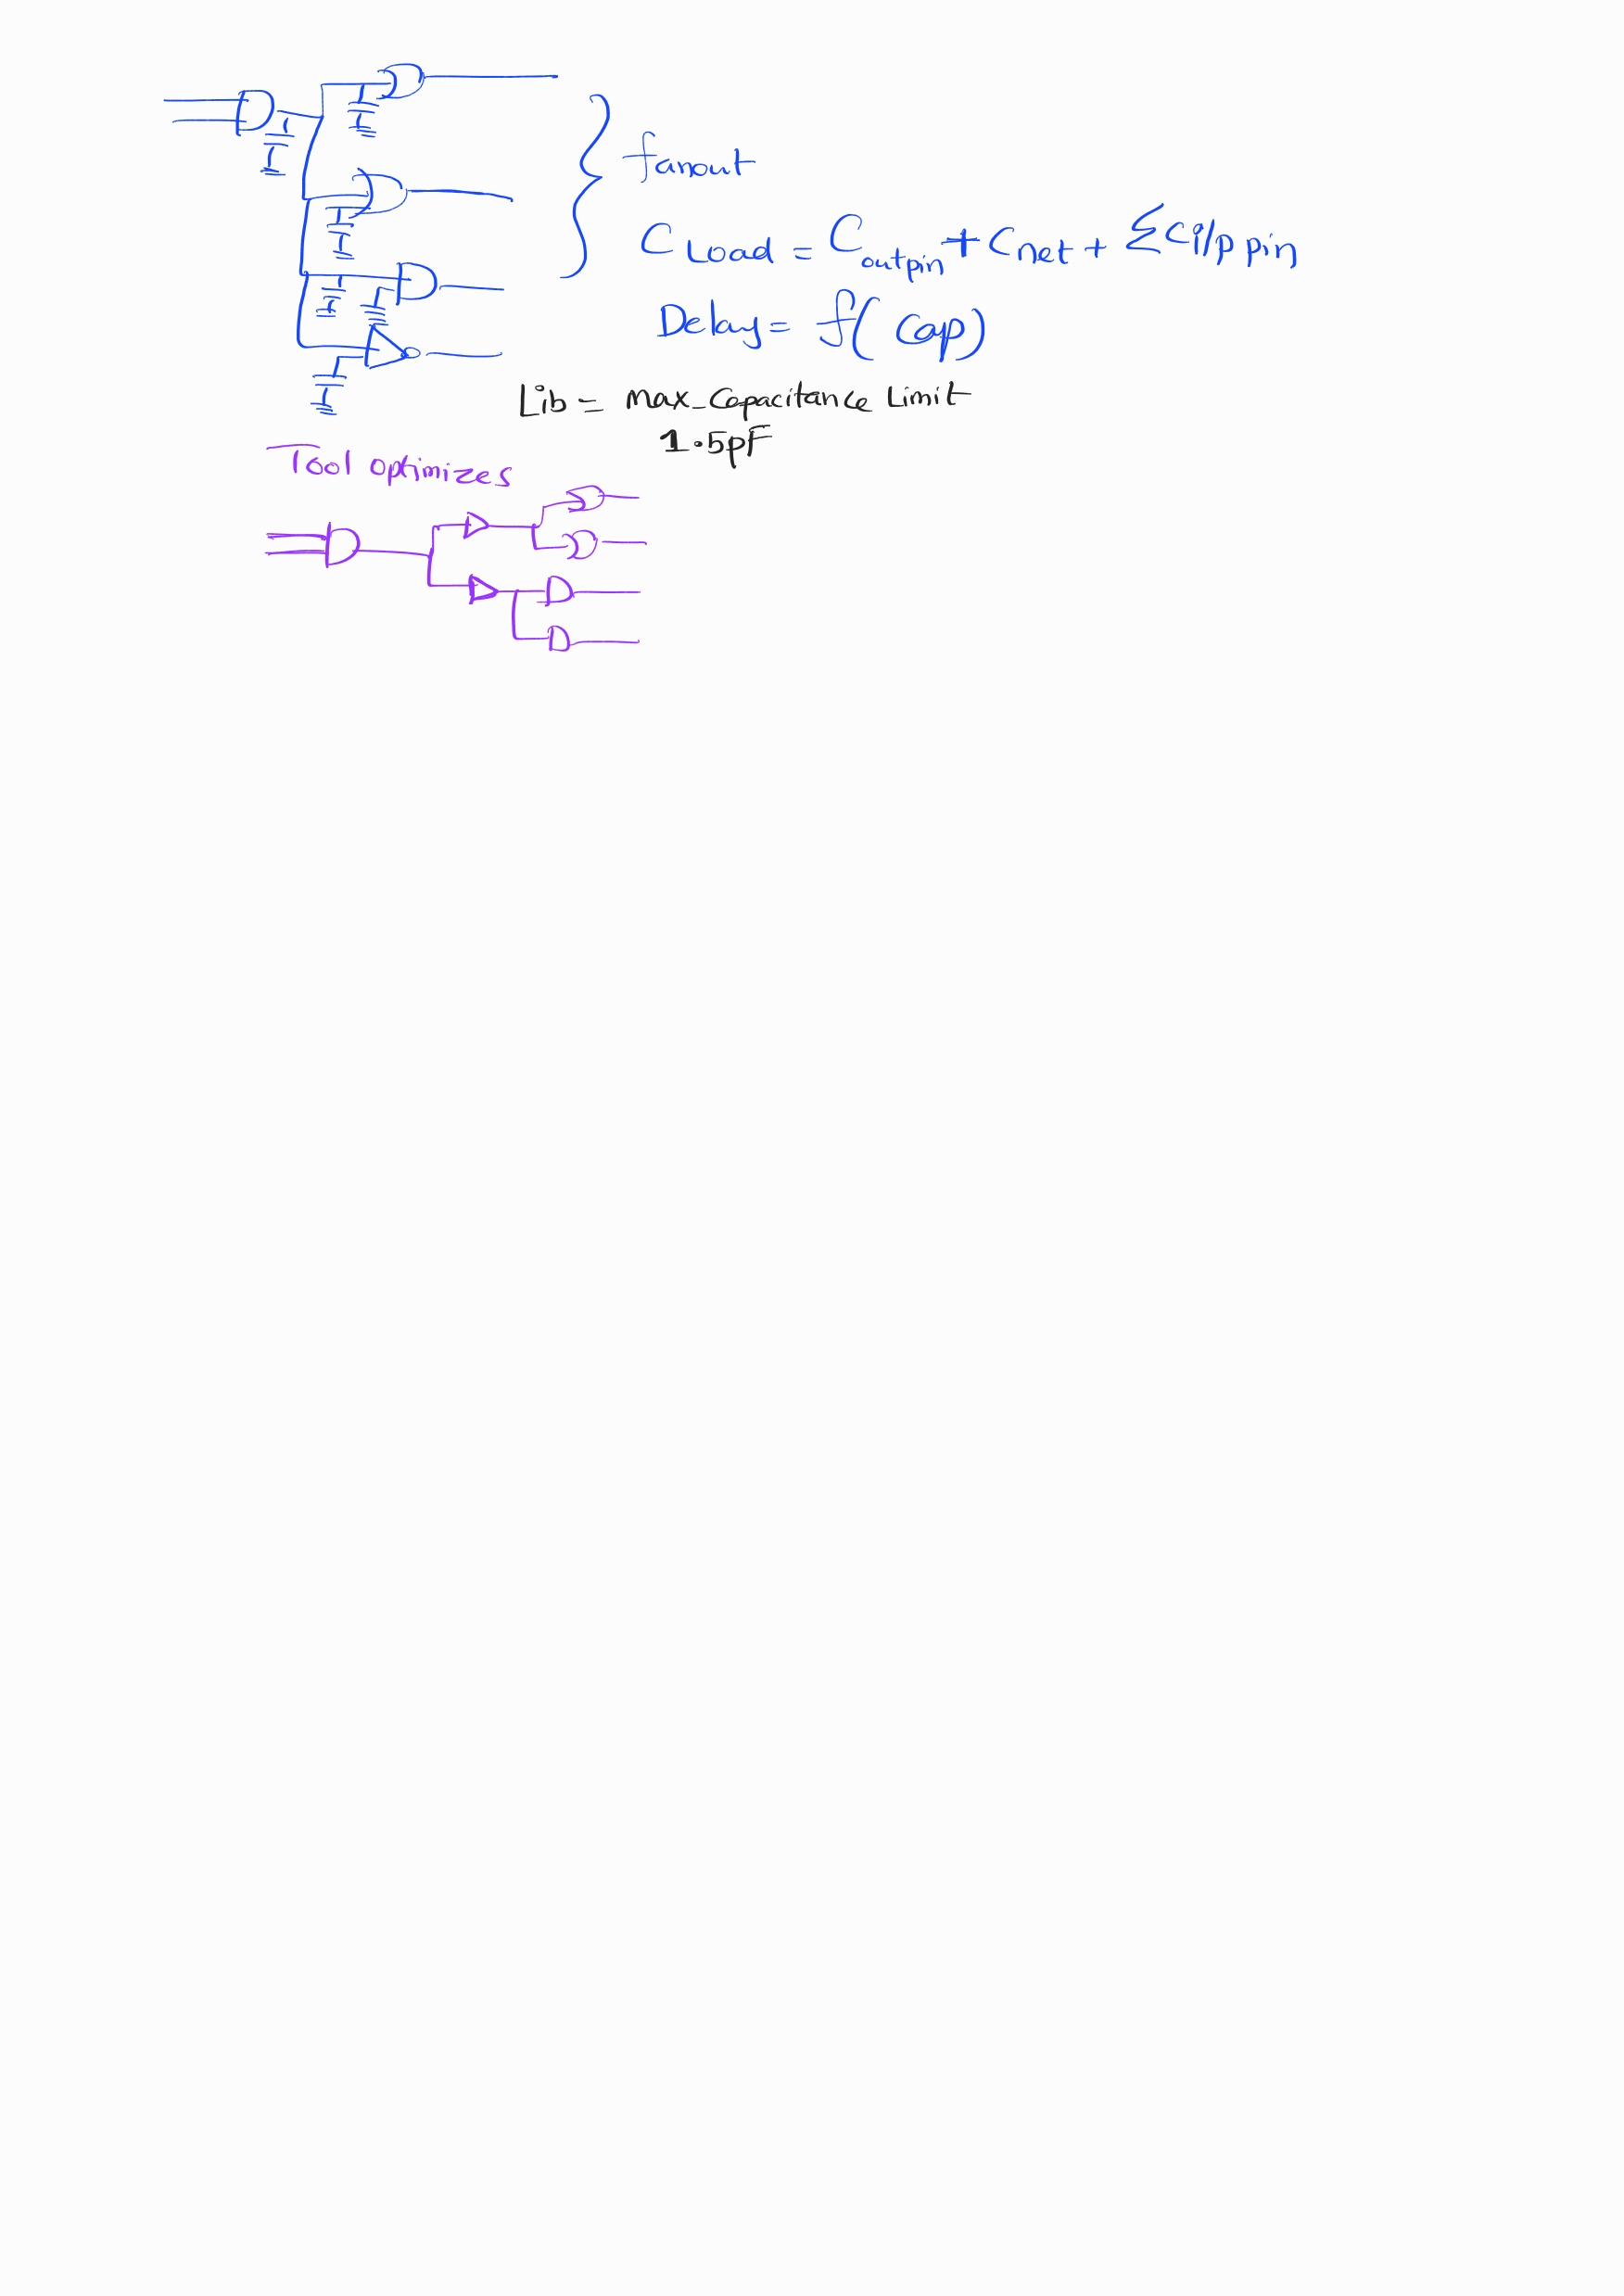 fanout
C Load = C outpin + Cnet + ΣCi/p pin
Delay = f( Cap)
Lib = max_Capacitance Limit
1.5pF
Tool optimizes